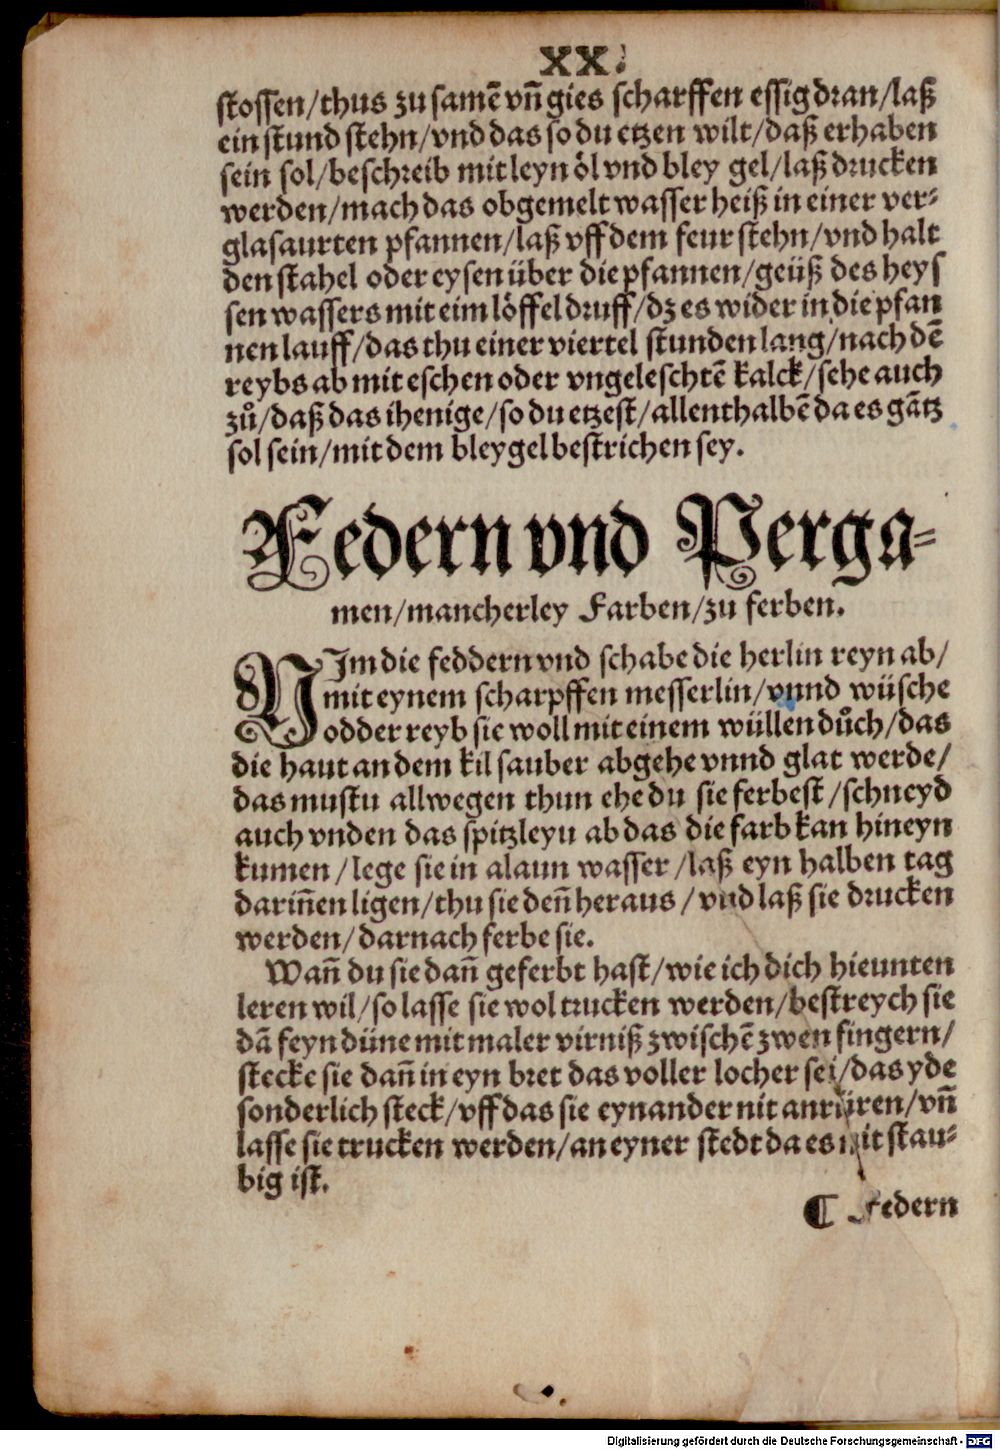 XX.
stossen/thus zu samē vñ gies scharffen essig dran/laß
ein stund stehn/vnd das so du etzen wilt/daß erhaben
sein sol/beschreib mit leyn öl vnd bley gel/laß drucken
werden/mach das obgemelt wasser heiß in einer ver-
glasaurten pfannen/laß vff dem feur stehn/vnd halt
den stahel oder eysen über die pfannen/geüß des heys
sen wassers mit eim löffel druff/dz es wider in die pfan
nen lauff/das thu einer viertel stunden lang/nach dē
reybs ab mit eschen oder vngeleschtē kalck/sehe auch
zů/daß das ihenige/so du etzest/allenthalbē da es gātz
sol sein/mit dem bleygel bestrichen sey.
Federn vnd Perga-
men/mancherley Farben/zu ferben.
NIm die feddern vnd schabe die herlin reyn ab/
mit eynem scharpffen messerlin/vnnd wüsche
odder reyb sie woll mit einem wüllen důch/das
die haut an dem kil sauber abgehe vnnd glat werde/
das mustu allwegen thun ehe du sie ferbest/schneyd
auch vnden das spitzleyn ab das die farb kan hineyn
kumen/lege sie in alaun wasser/laß eyn halben tag
dariñen ligen/thu sie deñ heraus/vnd laß sie drucken
werden/darnach ferbe sie.
Wañ du sie dañ geferbt hast/wie ich dich hieunten
leren wil/so lasse sie wol trucken werden/bestreych sie
dā feyn düne mit maler virniß zwischē zwen fingern/
stecke sie dañ in eyn bret das voller locher sei/das yde
sonderlich steck/vff das sie eynander nit anrüren/vñ
lasse sie trucken werden/an eyner stedt da es nit stau-
big ist.
¶ Federn
Digitalisierung gefördert durch die Deutsche Forschungsgemeinschaft - DFG